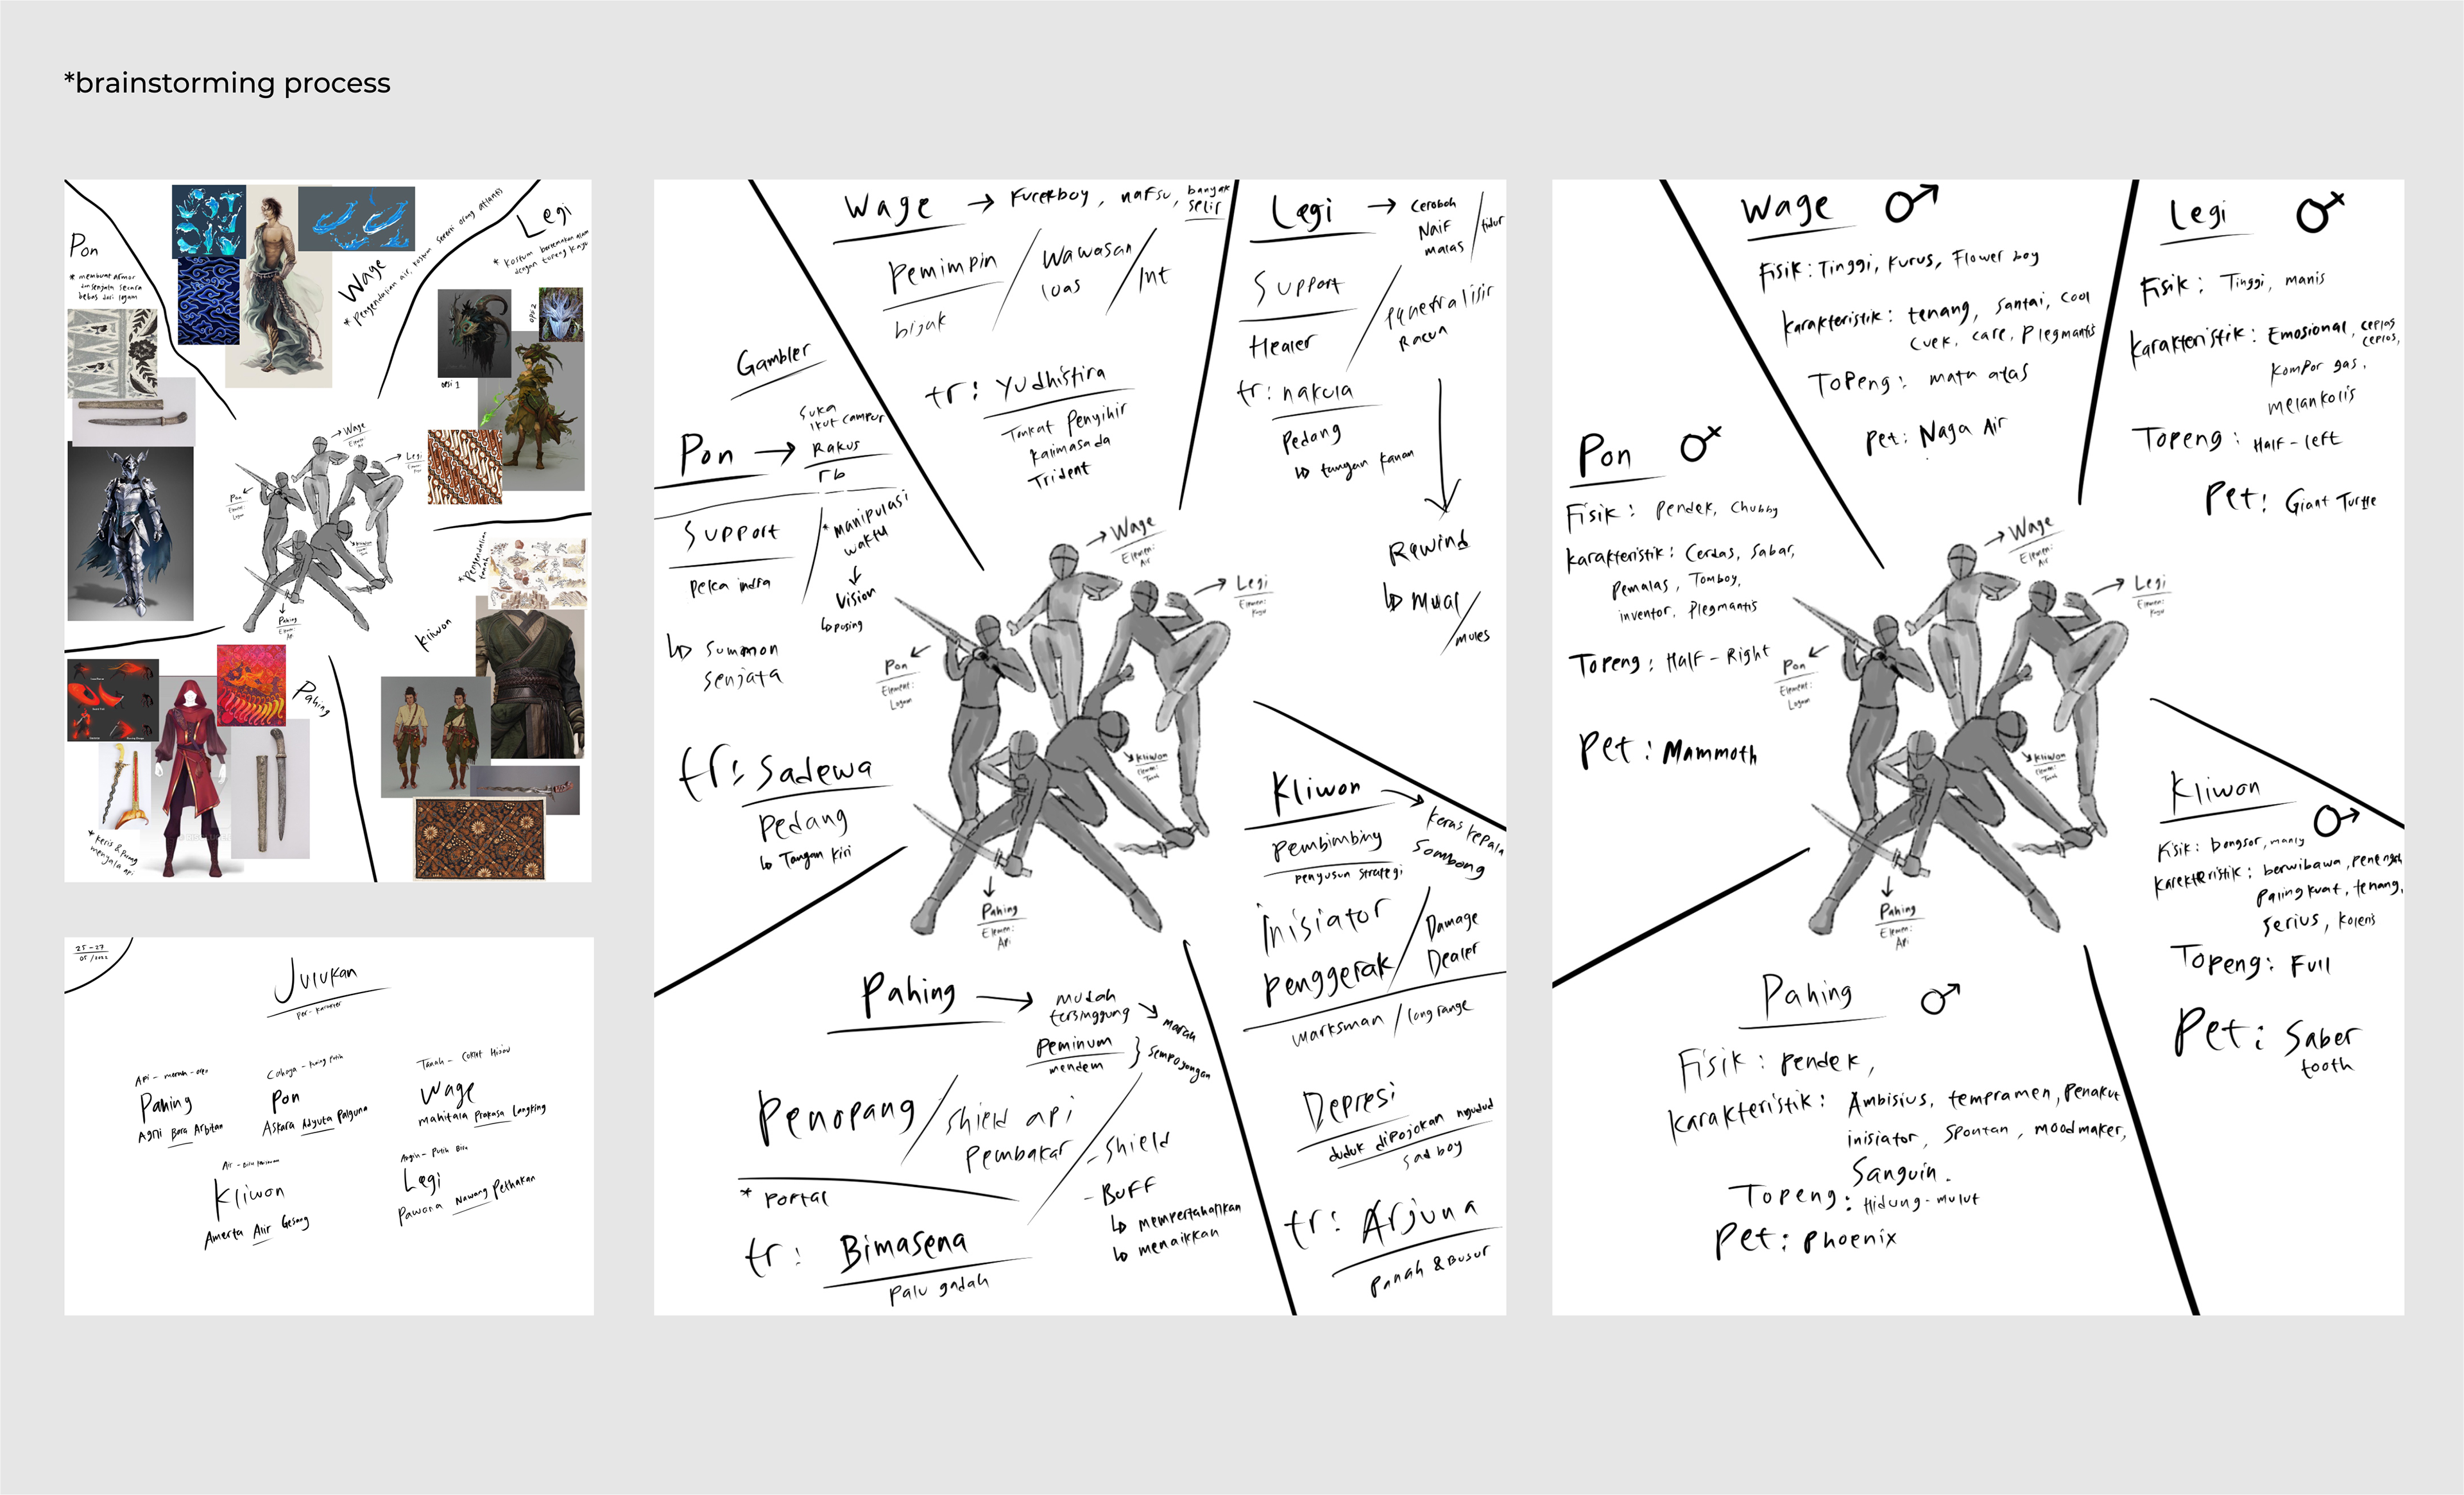 *brainstorming process
Pon
* membuat Armor
dan senjata secara
bebas dari logam
Wage
* Pengendalian air, kostum seperti orang atlantis
Legi
* kostum bertemakan alam
dengan topeng kayu
opsi 1
opsi 2
→ Wage
Elemen:
Air
→ Legi
Pon
Pahing
Api
* Pengendalian
tanah
Kliwon
Pahing
* keris & Parang
menyala api
25-27
05/2022
Julukan
Per-karakter
Pahing
Agni Bara Arbitan
Cahaya - kuning putih
Pon
Askara Adyuta Palguna
Tanah - coklat Hijau
Wage
mahitala Prakasa Langking
Kliwon
Amerta Alir Gesang
Angin - Putih Biru
Legi
Pawana Nawang Pethakan
Wage → Fucekboy, nafsu, banyak
selir
Pemimpin
bijak
Wawasan
luas
Int
tr: Yudhistira
Tonkat Penyihir
kalimasada
Trident
Legi → Ceroboh
Naif
malas
tidur
Support
Healer
penetralisir
Racun
tr: nakula
Pedang
↳ tangan kanan
Rewind
↳ Mual
mules
Gambler
Pon → suka
ikut campur
Rakus
rb
Support
Peka indra
* manipulasi
waktu
↓
Vision
↳ pusing
↳ Summon
senjata
tr: Sadewa
Pedang
↳ Tangan kiri
→ Wage
Elemen:
Air
→ Legi
Elemen:
Kayu
Pon
Element:
Logam
Kliwon
Elemen:
Tanah
Pahing
Elemen:
Api
Kliwon → keras kepala
Sombong
Pembimbing
Penyusun Strategi
Inisiator
Penggerak
Damage
Dealer
marksman / long range
Depresi
duduk dipojokan ngudud
sad boy
tr: Arjuna
Panah & Busur
Pahing → mudah
tersinggung → marah
Peminum
mendem
} Sempoyongan
Penopang
Shield api
Pembakar
* Portal
- Shield
- Buff
↳ mempertahankan
↳ menaikkan
tr: Bimasena
Palu gadah
Wage ♂
Fisik: Tinggi, kurus, Flower boy
karakteristik: tenang, santai, cool
cuek, care, Plegmantis
Topeng: mata atas
Pet: Naga Air
Legi ♀
Fisik: Tinggi, manis
karakteristik: Emosional, ceplas
ceplos,
kompor gas,
melankolis
Topeng: Half-left
Pet: Giant Turtle
Pon ♀
Fisik: Pendek, Chubby
karakteristik: Cerdas, Sabar,
Pemalas, Tomboy,
inventor, Plegmantis
Topeng: Half-Right
Pet: Mammoth
→ Wage
Elemen:
Air
→ Legi
Elemen:
Kayu
Pon
Element:
Logam
Kliwon
Elemen:
Tanah
Pahing
Elemen:
Api
Kliwon ♂
Fisik: bongsor, manly
Karekteristik: berwibawa, penengah
Paling kuat, tenang,
serius, koleris
Topeng: Full
Pet: Saber
tooth
Pahing ♂
Fisik: Pendek,
karakteristik: Ambisius, tempramen, penakut
inisiator, spontan, moodmaker,
Sanguin.
Topeng: Hidung-mulut
Pet: Phoenix